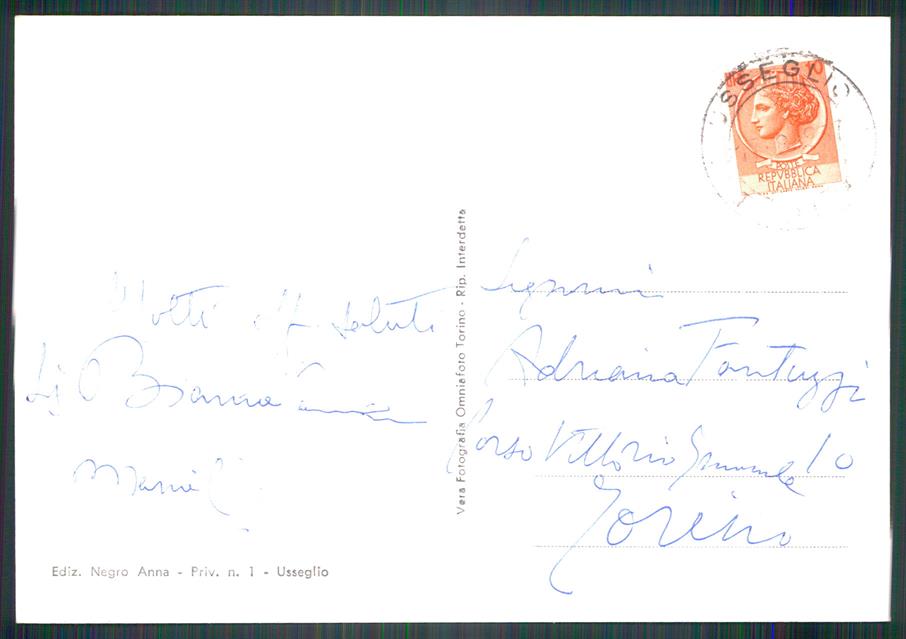 USSEGLIO
POSTE
REPVBBLICA
ITALIANA
Molti aff. saluti
Bianca
Signorina
Adriana Fantuzzi
Corso Vittorio Emanuele 10
Torino
Vera Fotografia Omniafoto Torino - Rip. Interdetta
Ediz. Negro Anna - Priv. n. 1 - Usseglio